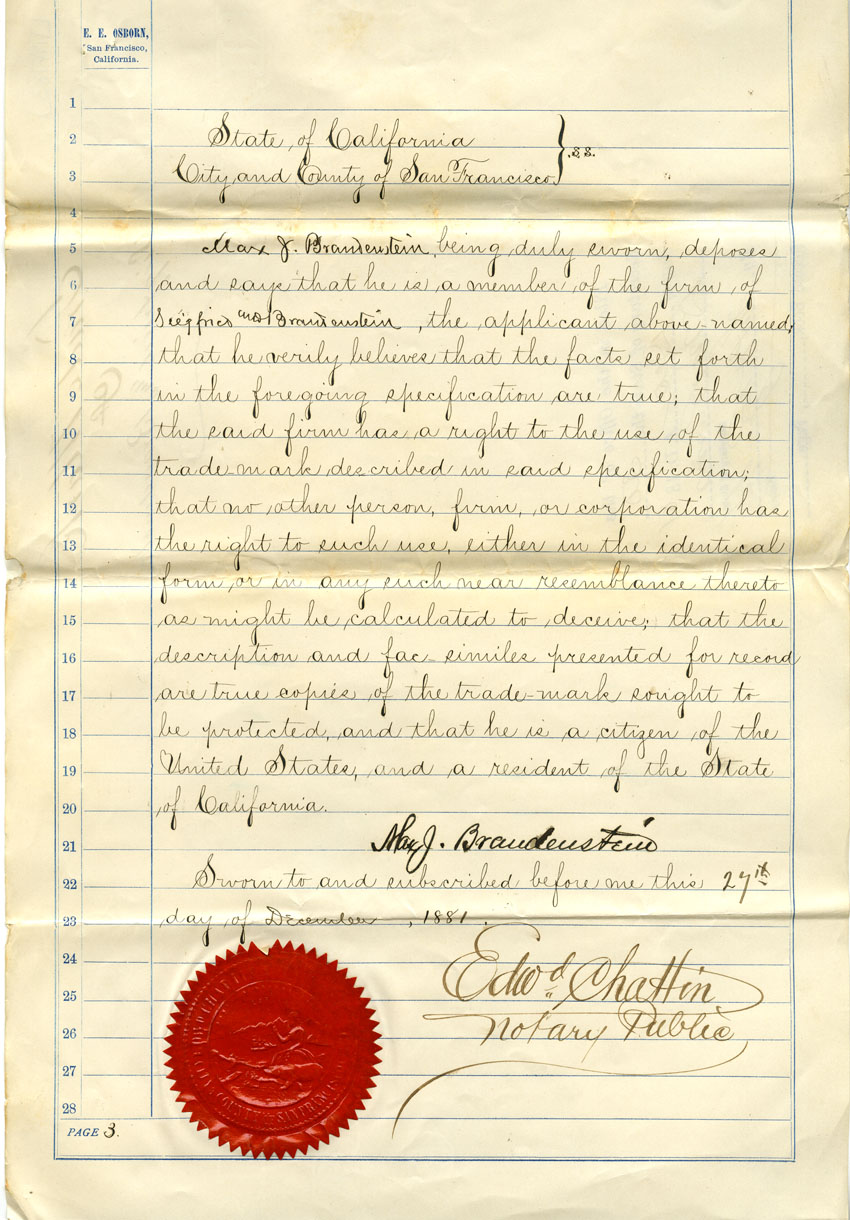 E. E. OSBORN,
San Francisco,
California.
1
2 State of California
3 City and County of San Francisco } ss.
4
5 Max J. Brandenstein, being duly sworn, deposes
6 and says that he is a member of the firm of
7 Siegfried and Brandenstein, the applicant above-named;
8 that he verily believes that the facts set forth
9 in the foregoing specification are true; that
10 the said firm has a right to the use of the
11 trade-mark described in said specification;
12 that no other person, firm, or corporation has
13 the right to such use, either in the identical
14 form or in any such near resemblance thereto
15 as might be calculated to deceive; that the
16 description and fac-similes presented for record
17 are true copies of the trade-mark sought to
18 be protected, and that he is a citizen of the
19 United States, and a resident of the State
20 of California.
21 Max J. Brandenstein
22 Sworn to and subscribed before me this 27th
23 day of December, 1881.
24 Edwd. Chattin
25
26 Notary Public
27
28
PAGE 3.